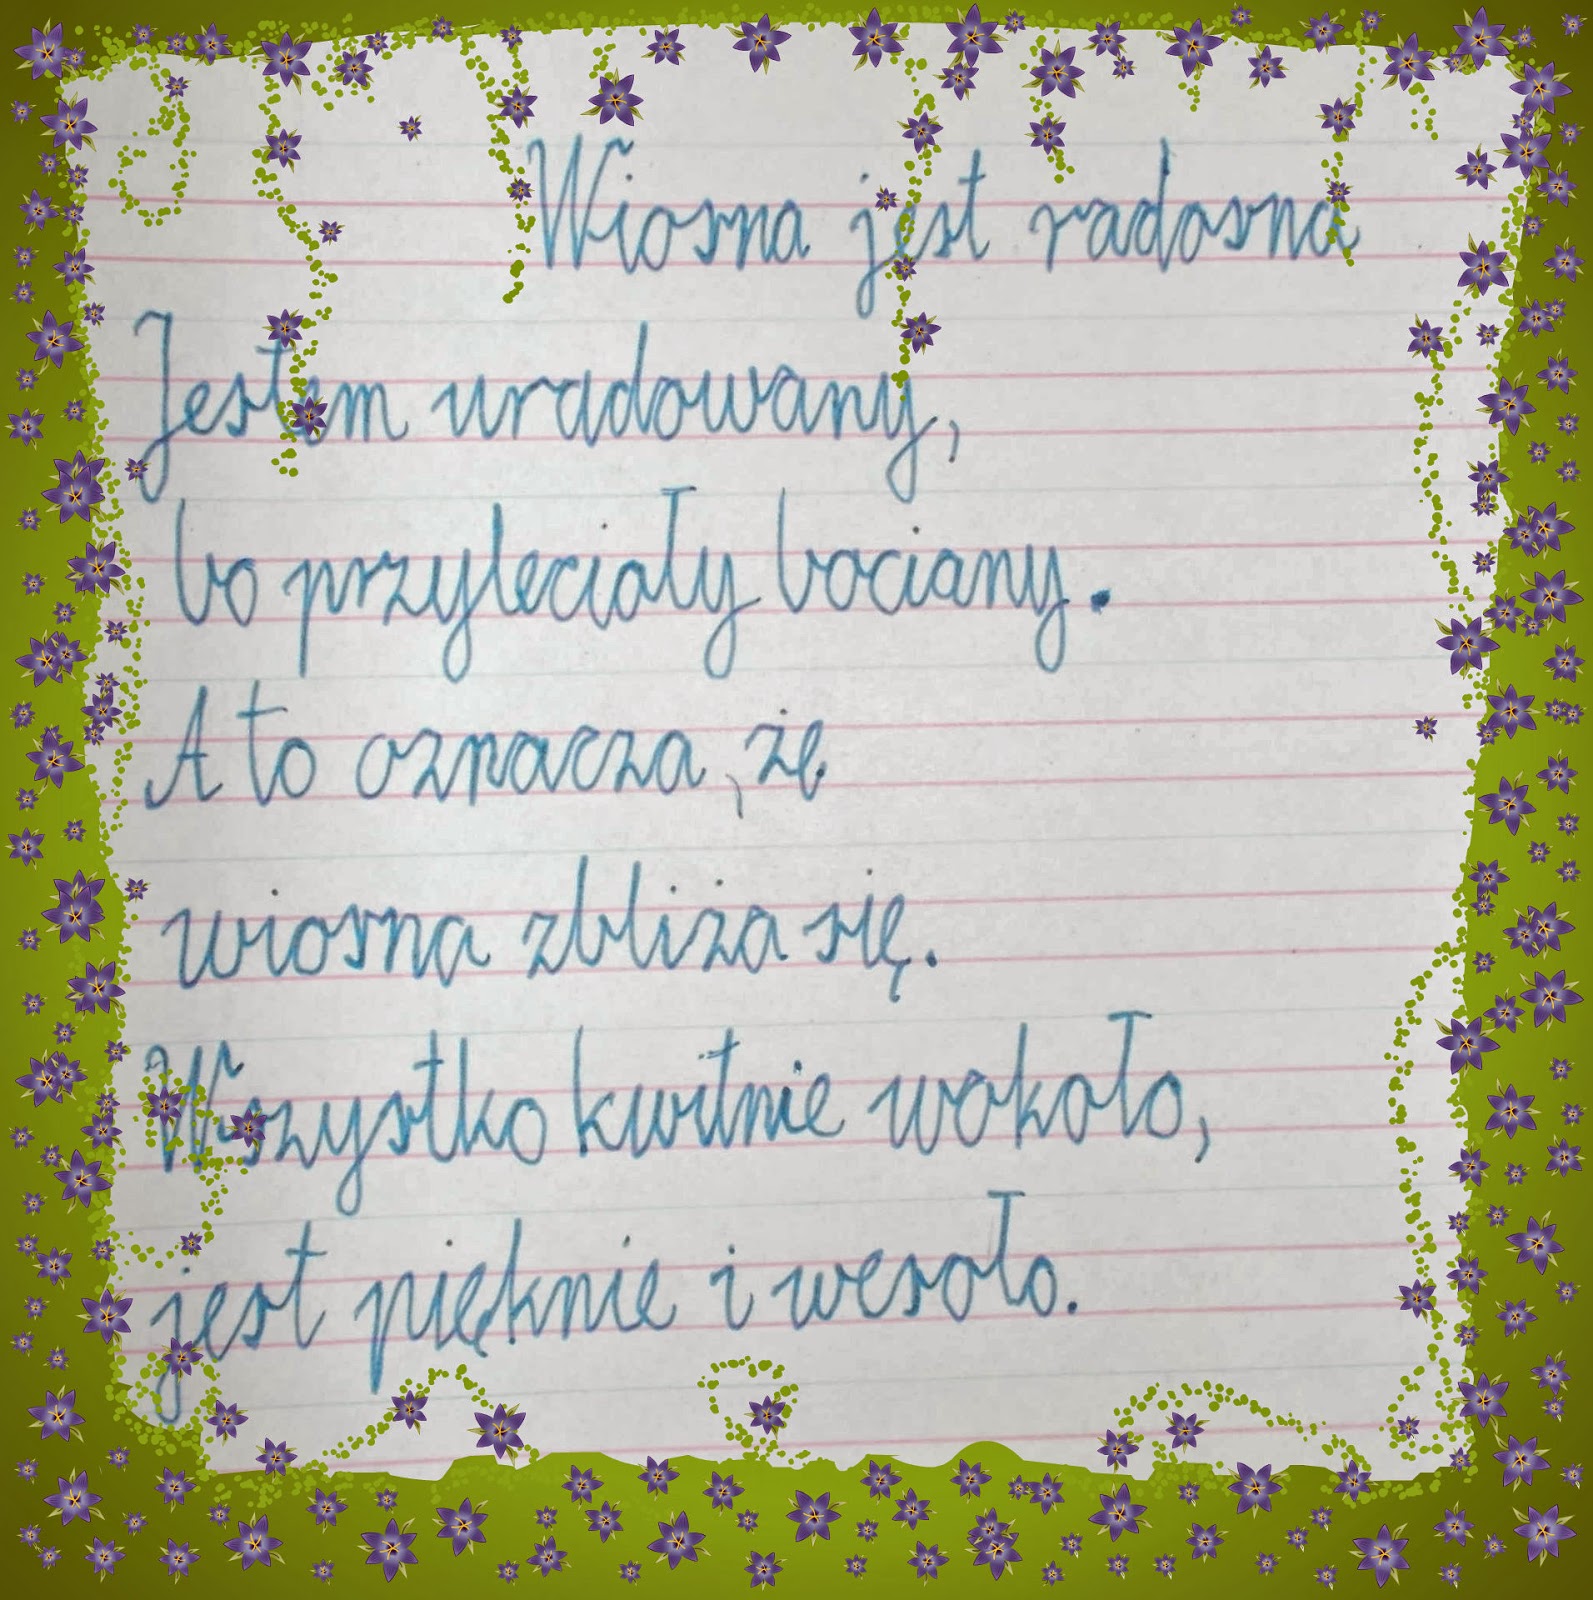 Wiosna jest radosna
Jestem uradowany,
bo przyleciały bociany.
A to oznacza, że
wiosna zbliża się.
Wszystko kwitnie wokoło,
jest pięknie i wesoło.